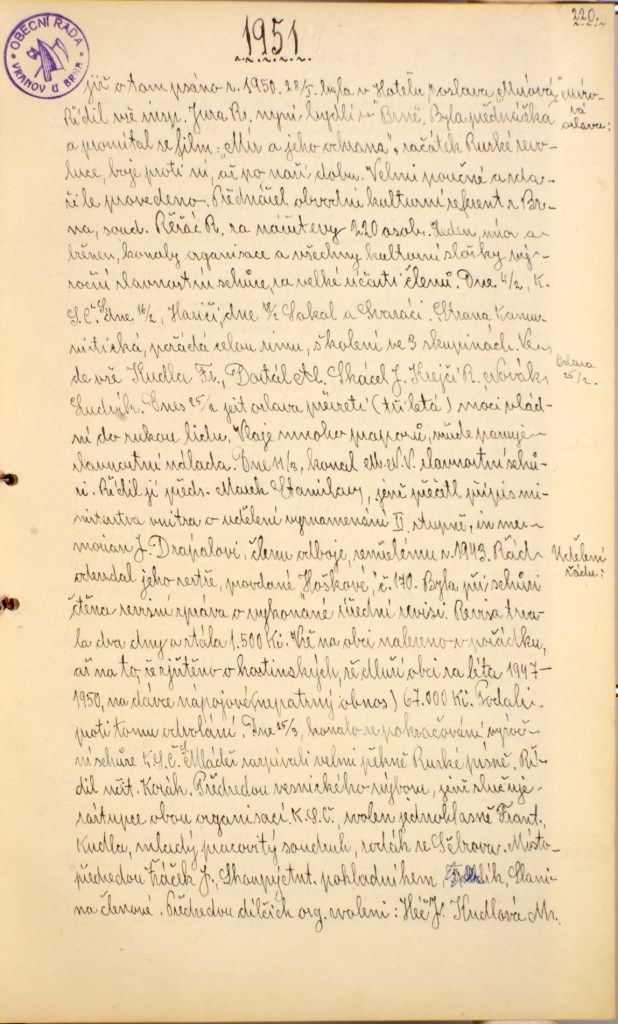 220.
OBECNÍ RADA
VRANOV U BRNA
1951.
již o tom psáno r. 1950. 28/5. byla v Hotelu, oslava „Mírová“,
mírová oslava:
Řídil vše insp. Jura R. nyní bydlí v Brně. Byla přednáška
a promítal se film: „Mír a jeho ochrana“, začátek Ruské revo-
luce, boje proti ní, až po naší dobu. Velmi poučné a zda-
řile provedeno. Přednášel obvodní kulturní referent z Br-
na, soud. Řeřáč R. za návštevy 220 osob. Leden, únor a
březen, konaly organisace a všechny kulturní složky vý-
roční slavnostní schůze, za velké účasti členů. Dne 4/2, K.
S.Č. dne 16/2, Hasiči, dne Sokol a Svazáci. Strana Komu-
nistická, pořádá celou zimu, školení ve 3 skupinách. Ve-
de vše Kudla Fr., Dostál Al. Skácel J. Krejčí R. Novák
Oslava 25/2.
Ludvík. Dnes 25/2 jest oslava převzetí (tříletá) moci vlád-
ní do rukou lidu, Vlaje mnoho praporů, všude panuje
slavnostní nálada. Dne 11/3, konal M.N.V. slavnostní schů-
zi. Řídil ji předs. Marek Stanislav, jenž přečetl přípis mi-
nisterstva vnitra o udělení vyznamenání II. stupně, in me-
moriam J. Drápalovi, členu odboje, zemřelému r. 1943. Řád
Udělení řádu:
odevzdal jeho sestře, provdané Hoškové, č. 170. Byla při schůzi
čtěna revisní zpráva o vykonané úřední revisi. Revise trva-
la dva dny a stála 1.500 Kč. Vše na obci nalezeno v pořádku,
až na to, že zjištěno o hostinských, že dluží obci za léta 1947-
1950, na dávce nápojové (nepatrný obnos) 67.000 Kč. Podali
proti tomu odvolání. Dne 25/3, konalo se pokračování výroč-
ní schůze K.S.Č. Mládež zazpívali velmi pěkně Ruské písně. Ří-
dil učit. Kozák. Předsedou vesnického výboru, jenž slučuje
zástupce obou organisací K.S.Č., zvolen jednohlasně Frant.
Kudla, mladý pracovitý soudruh, rodák ze Sěbrova. Místo-
předsedou Fráček J., Skoupý Ant. pokladníkem,
na členové. Předsedou dílčích org. zvoleni: Héč J. Kudlová M.